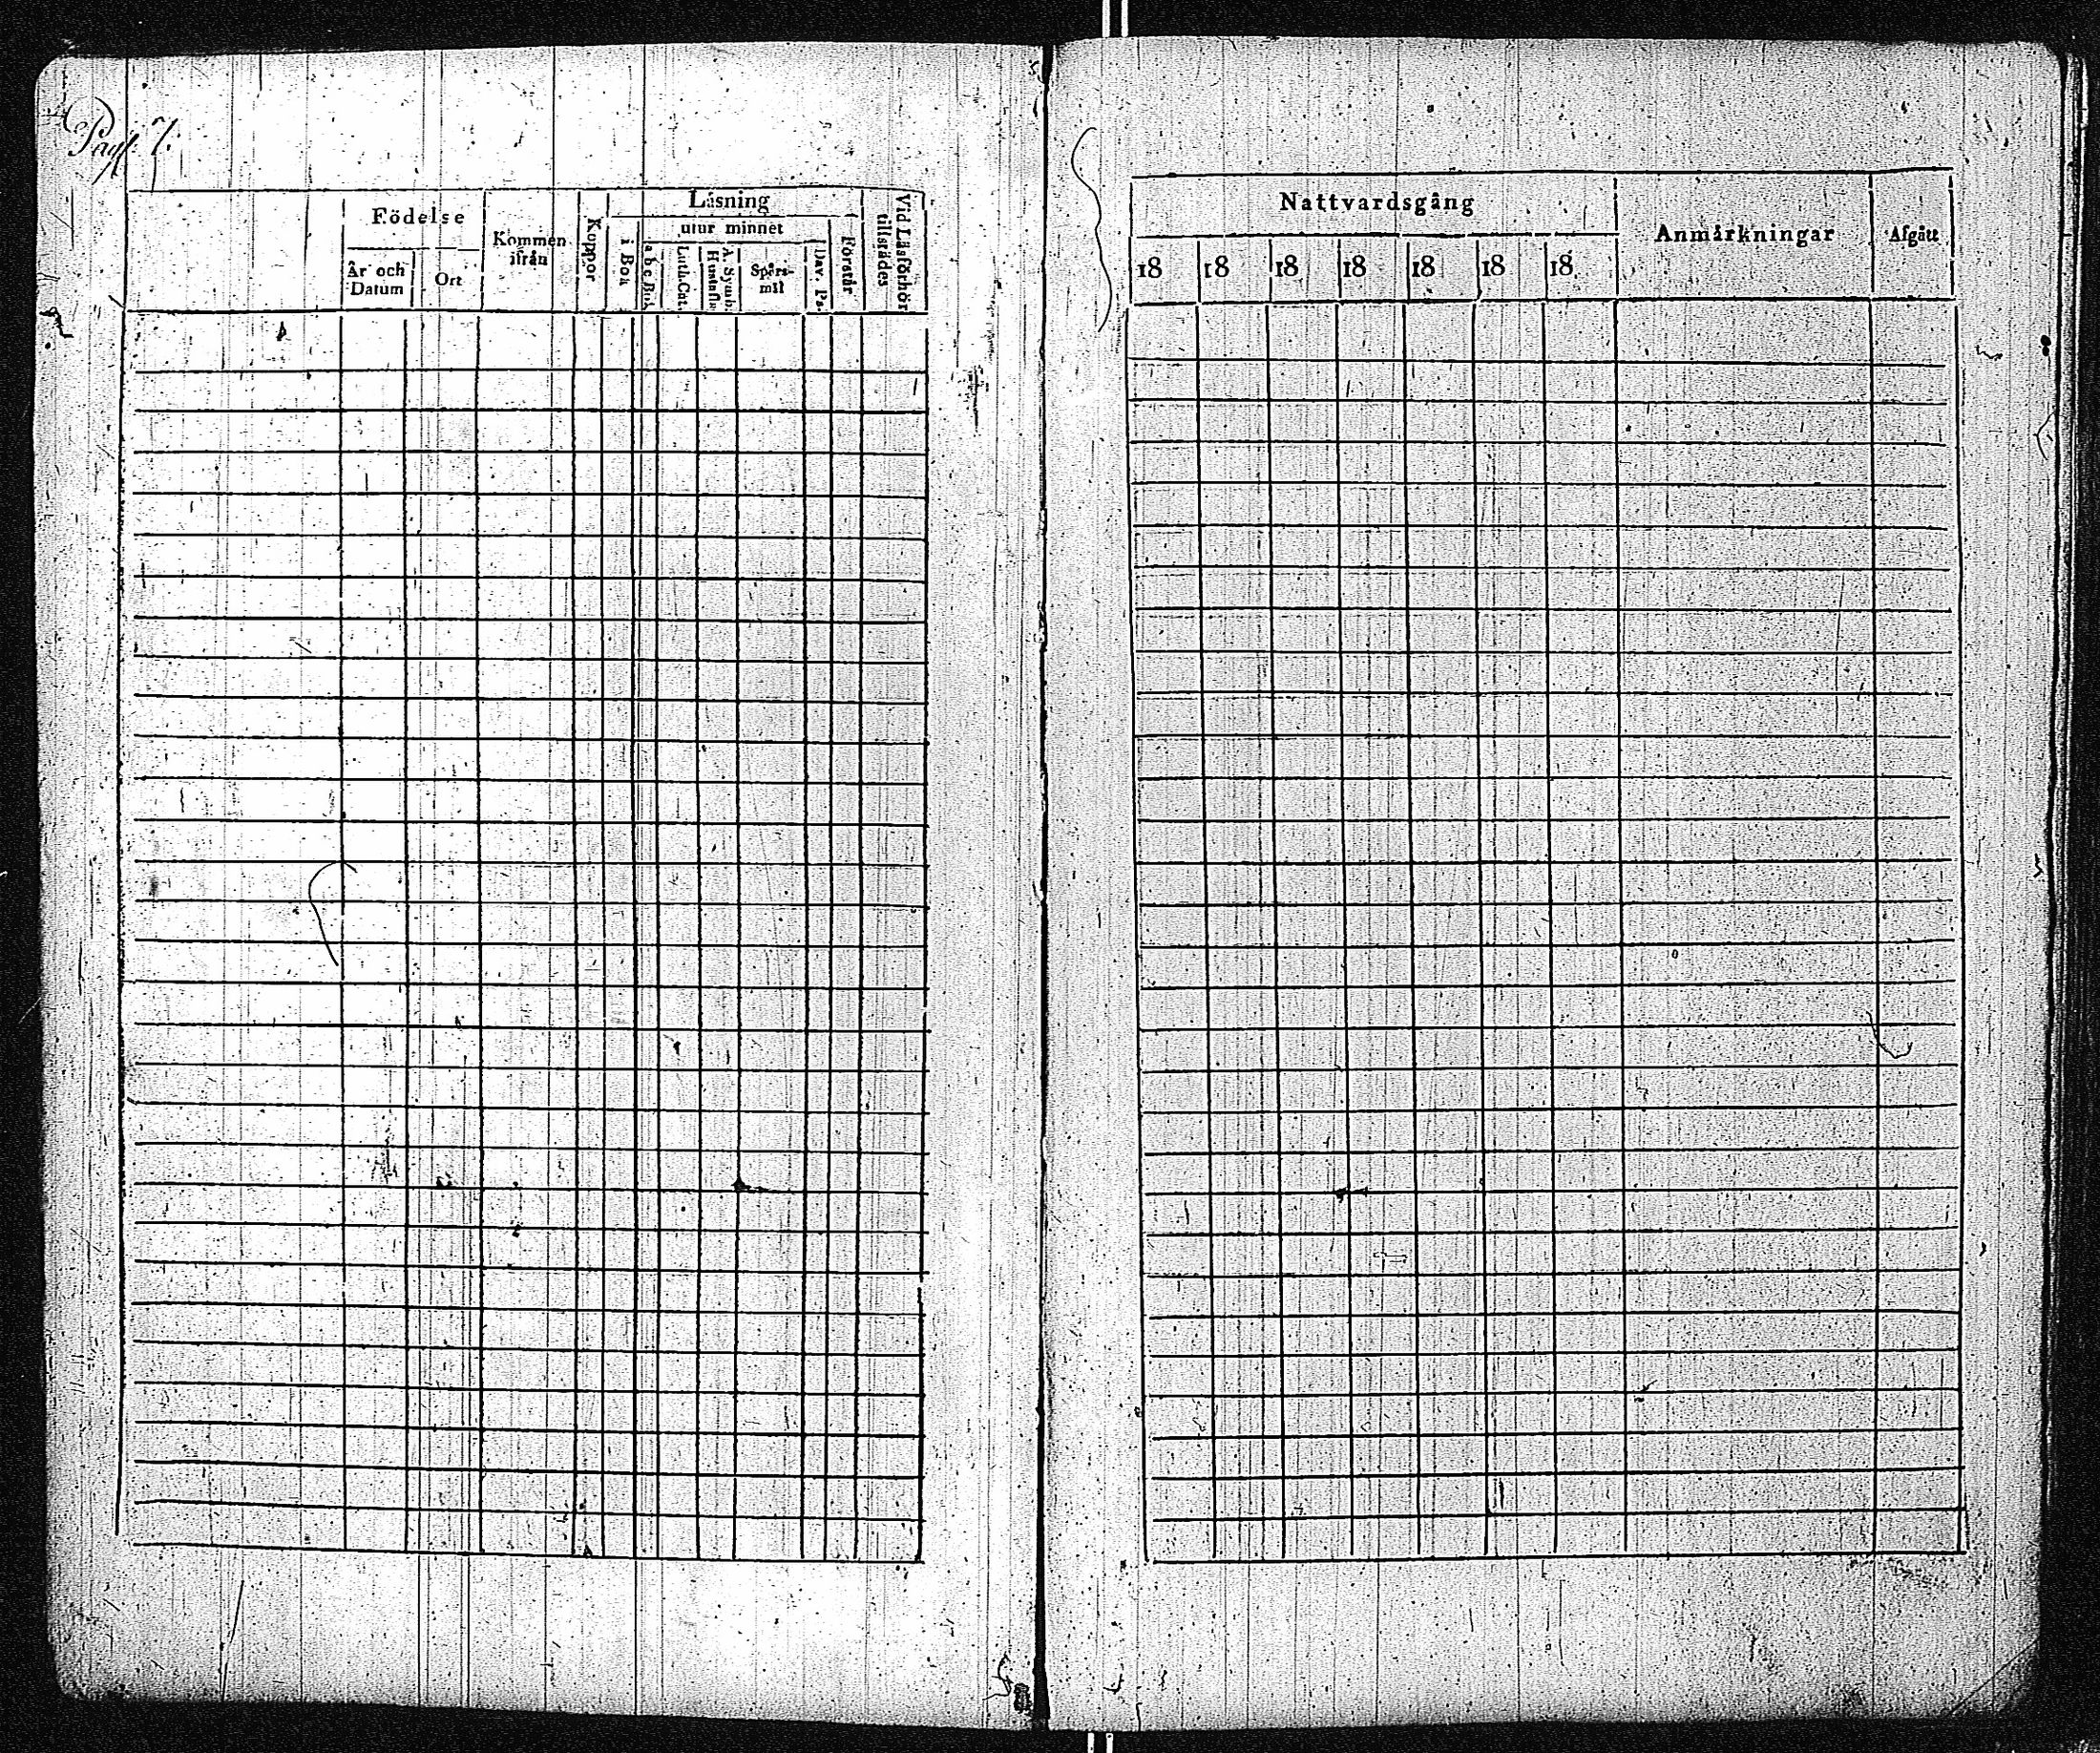 Pag. 7.
Födelse
År och Datum
Ort
Kommen ifrån
Koppor
Läsning
i Bok
utur minnet
a b c Bok
Luth. Cat.
Hustafla
A. Symb.
Spörs-mål
Dav. Ps.
Förstår
Vid Läsförhör tillstädes
Nattvardsgång
18 18 18 18 18 18 18
Anmärkningar
Afgått